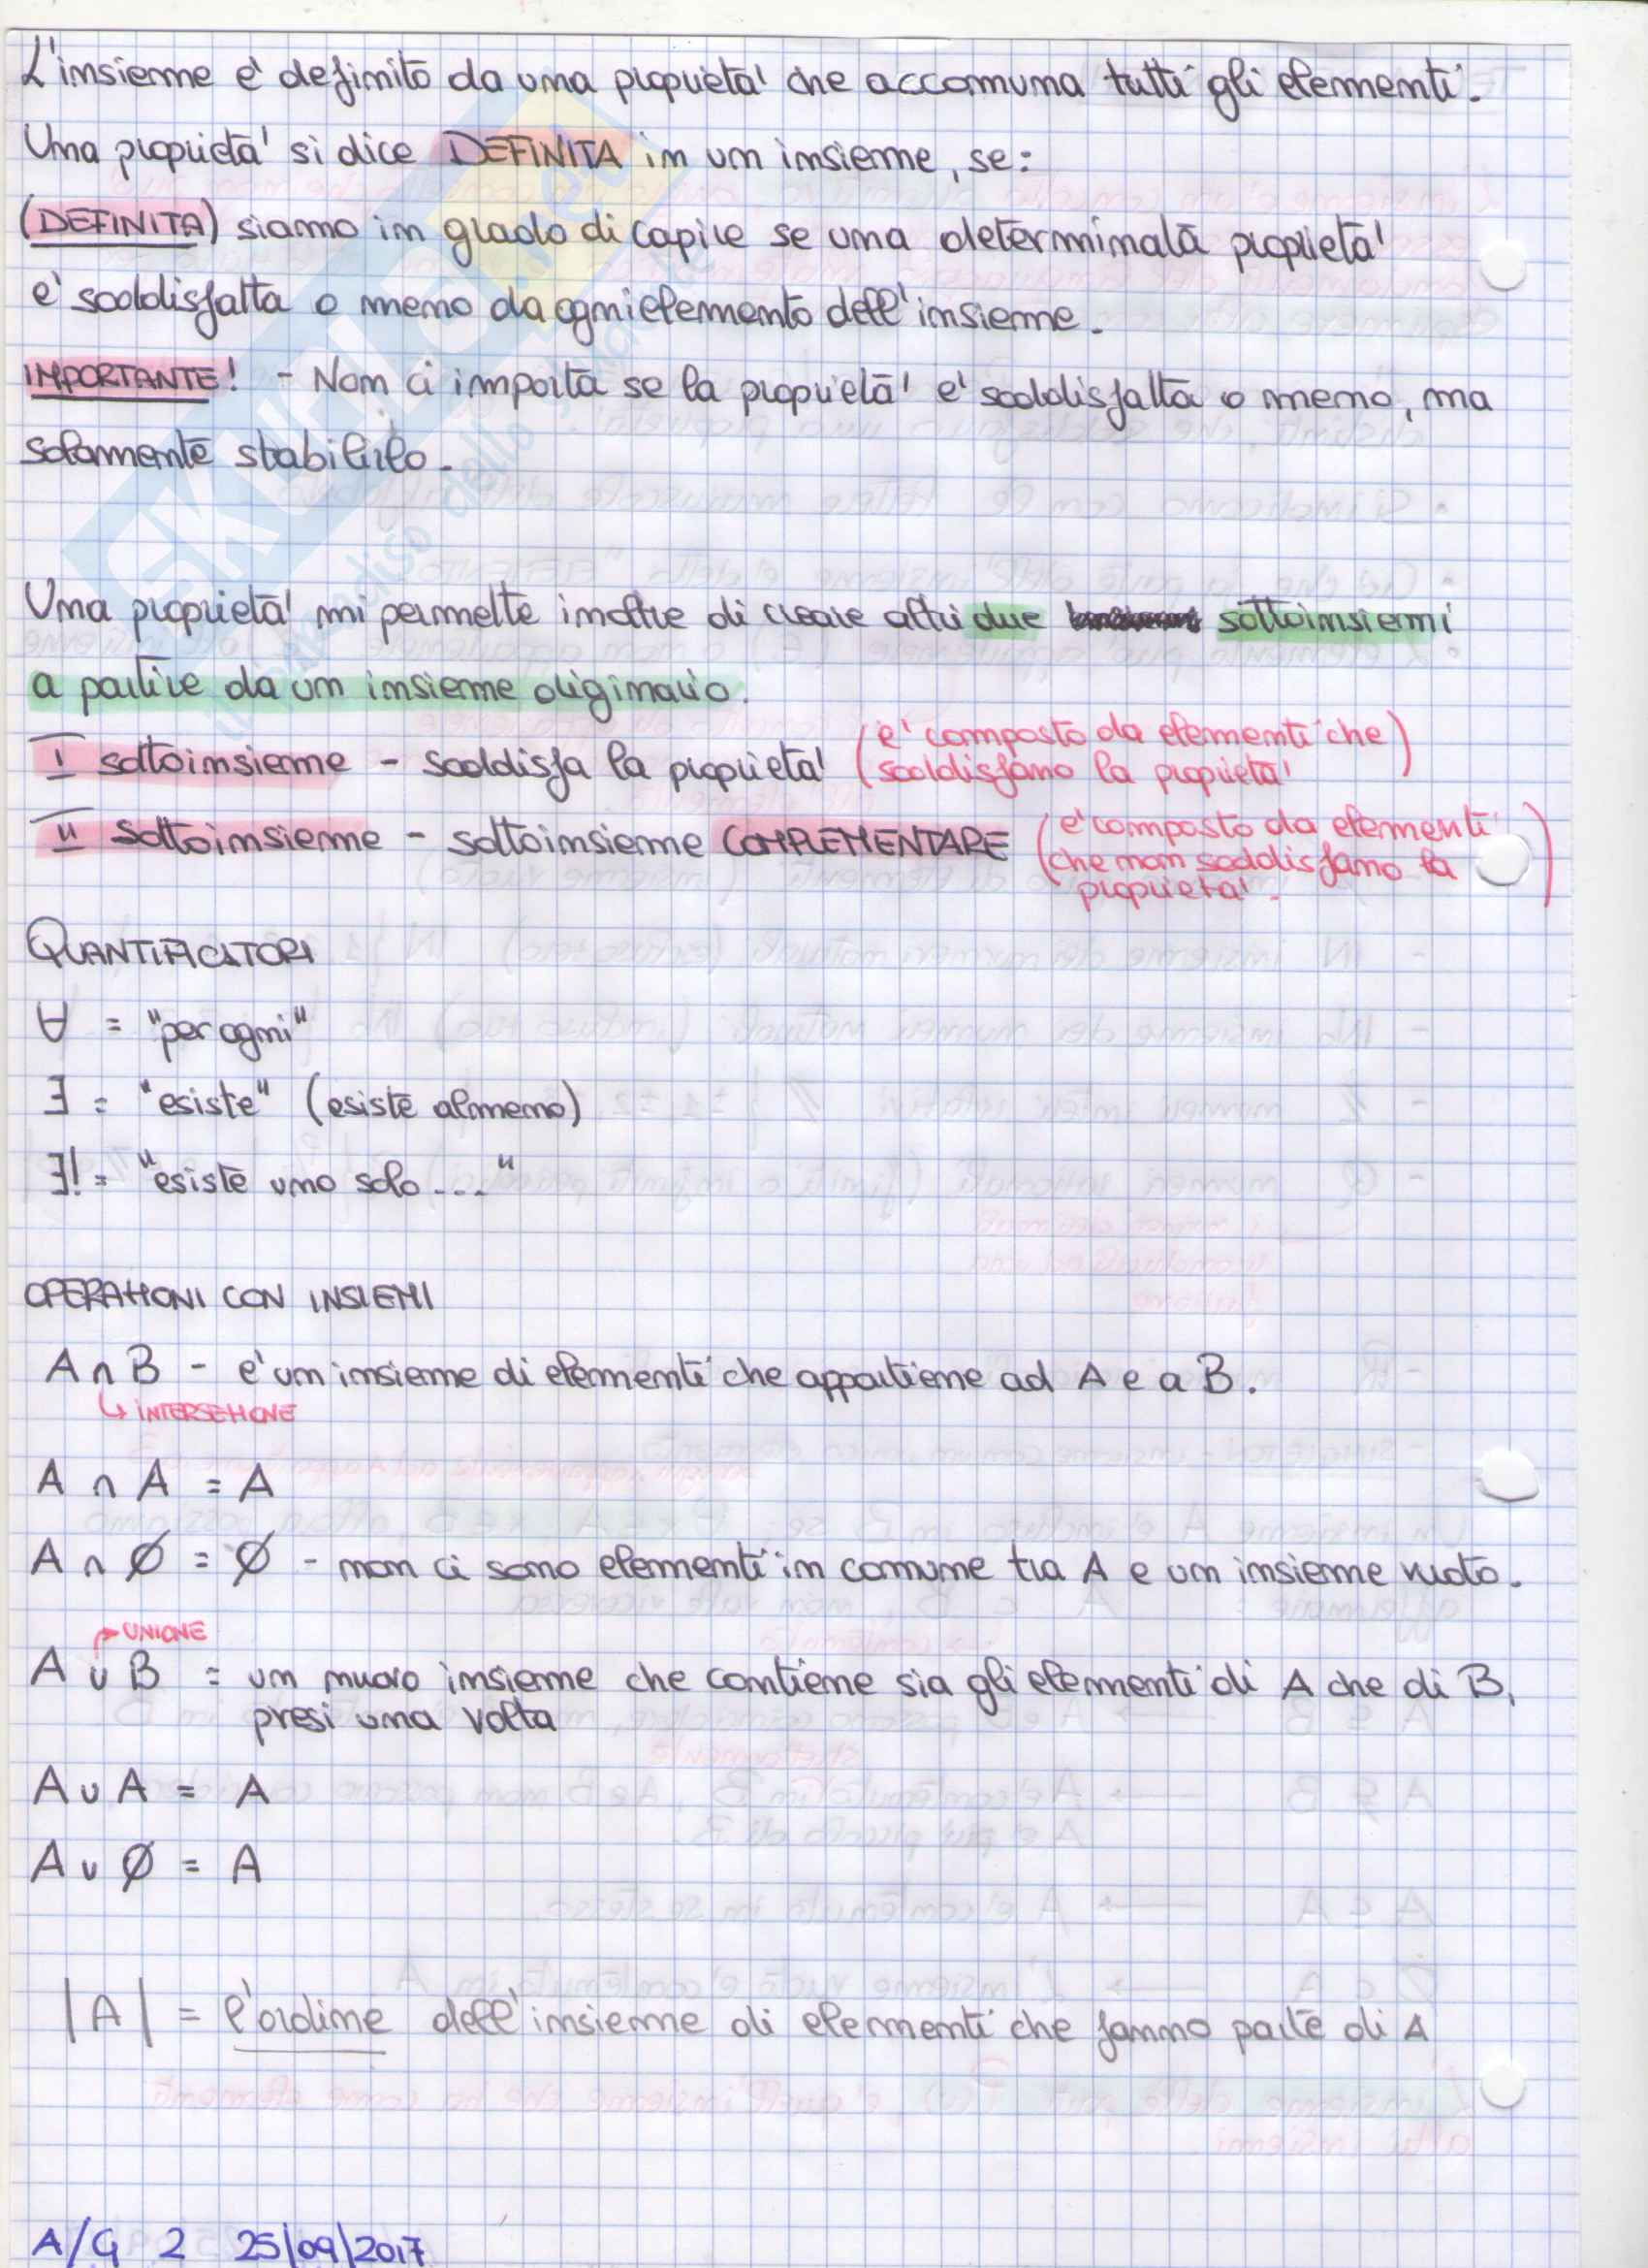 L'insieme e' definito da una proprieta' che accomuna tutti gli elementi.
Una proprietà' si dice DEFINITA in un insieme, se:
(DEFINITA) siamo in grado di capire se una determinata proprietà'
e' soddisfatta o meno da ogni elemento dell'insieme.
IMPORTANTE! - Non ci importa se la proprietà' e' soddisfatta o meno, ma
solamente stabilirlo.
Una proprietà' mi permette inoltre di creare altri due sottoinsiemi
a partire da un insieme originario.
I sottoinsieme - soddisfa la proprieta' (e' composto da elementi che
soddisfano la proprietà')
II sottoinsieme - sottoinsieme COMPLEMENTARE (e' composto da elementi
che non soddisfano la
proprieta'.)
QUANTIFICATORI
∀ = "per ogni"
∃ = "esiste" (esiste almeno)
∃! = "esiste uno solo..."
OPERAZIONI CON INSIEMI
A ∩ B - e' un insieme di elementi che appartiene ad A e a B.
↳ INTERSEZIONE
A ∩ A = A
A ∩ Ø = Ø - non ci sono elementi in comune tra A e un insieme vuoto.
→ UNIONE
A ∪ B = un nuovo insieme che contiene sia gli elementi di A che di B,
presi una volta
A ∪ A = A
A ∪ Ø = A
|A| = l'ordine dell'insieme di elementi che fanno parte di A
A/G 2 25/09/2017
SKUOLA.net